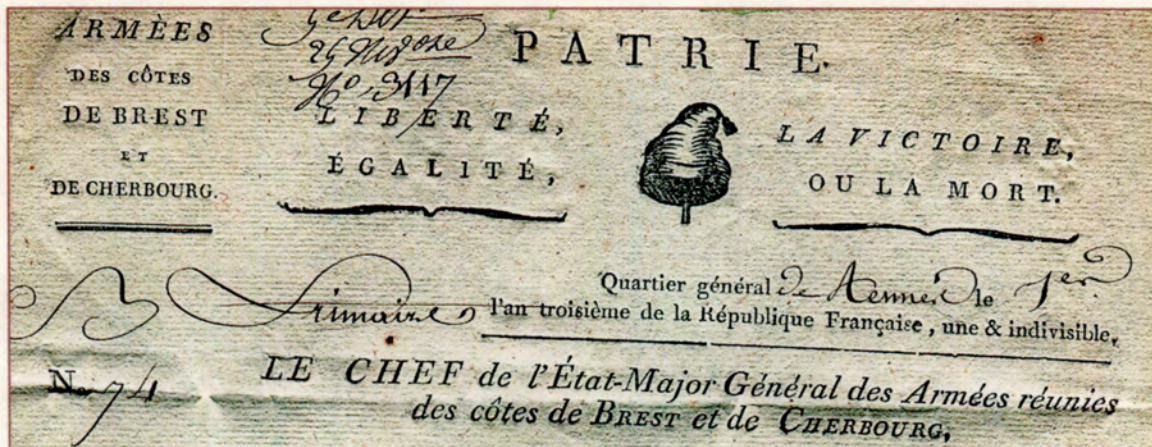 ARMÈES
DES CÔTES
DE BREST
ET
DE CHERBOURG.
29 Nivose
No. 3117
PATRIE.
LIBERTÉ,
ÉGALITÉ,
LA VICTOIRE,
OU LA MORT.
Quartier général de Rennes le 1er
frimaire l'an troisième de la République Française, une & indivisible,
No 74
LE CHEF de l'État-Major Général des Armées réunies
des côtes de BREST et de CHERBOURG,